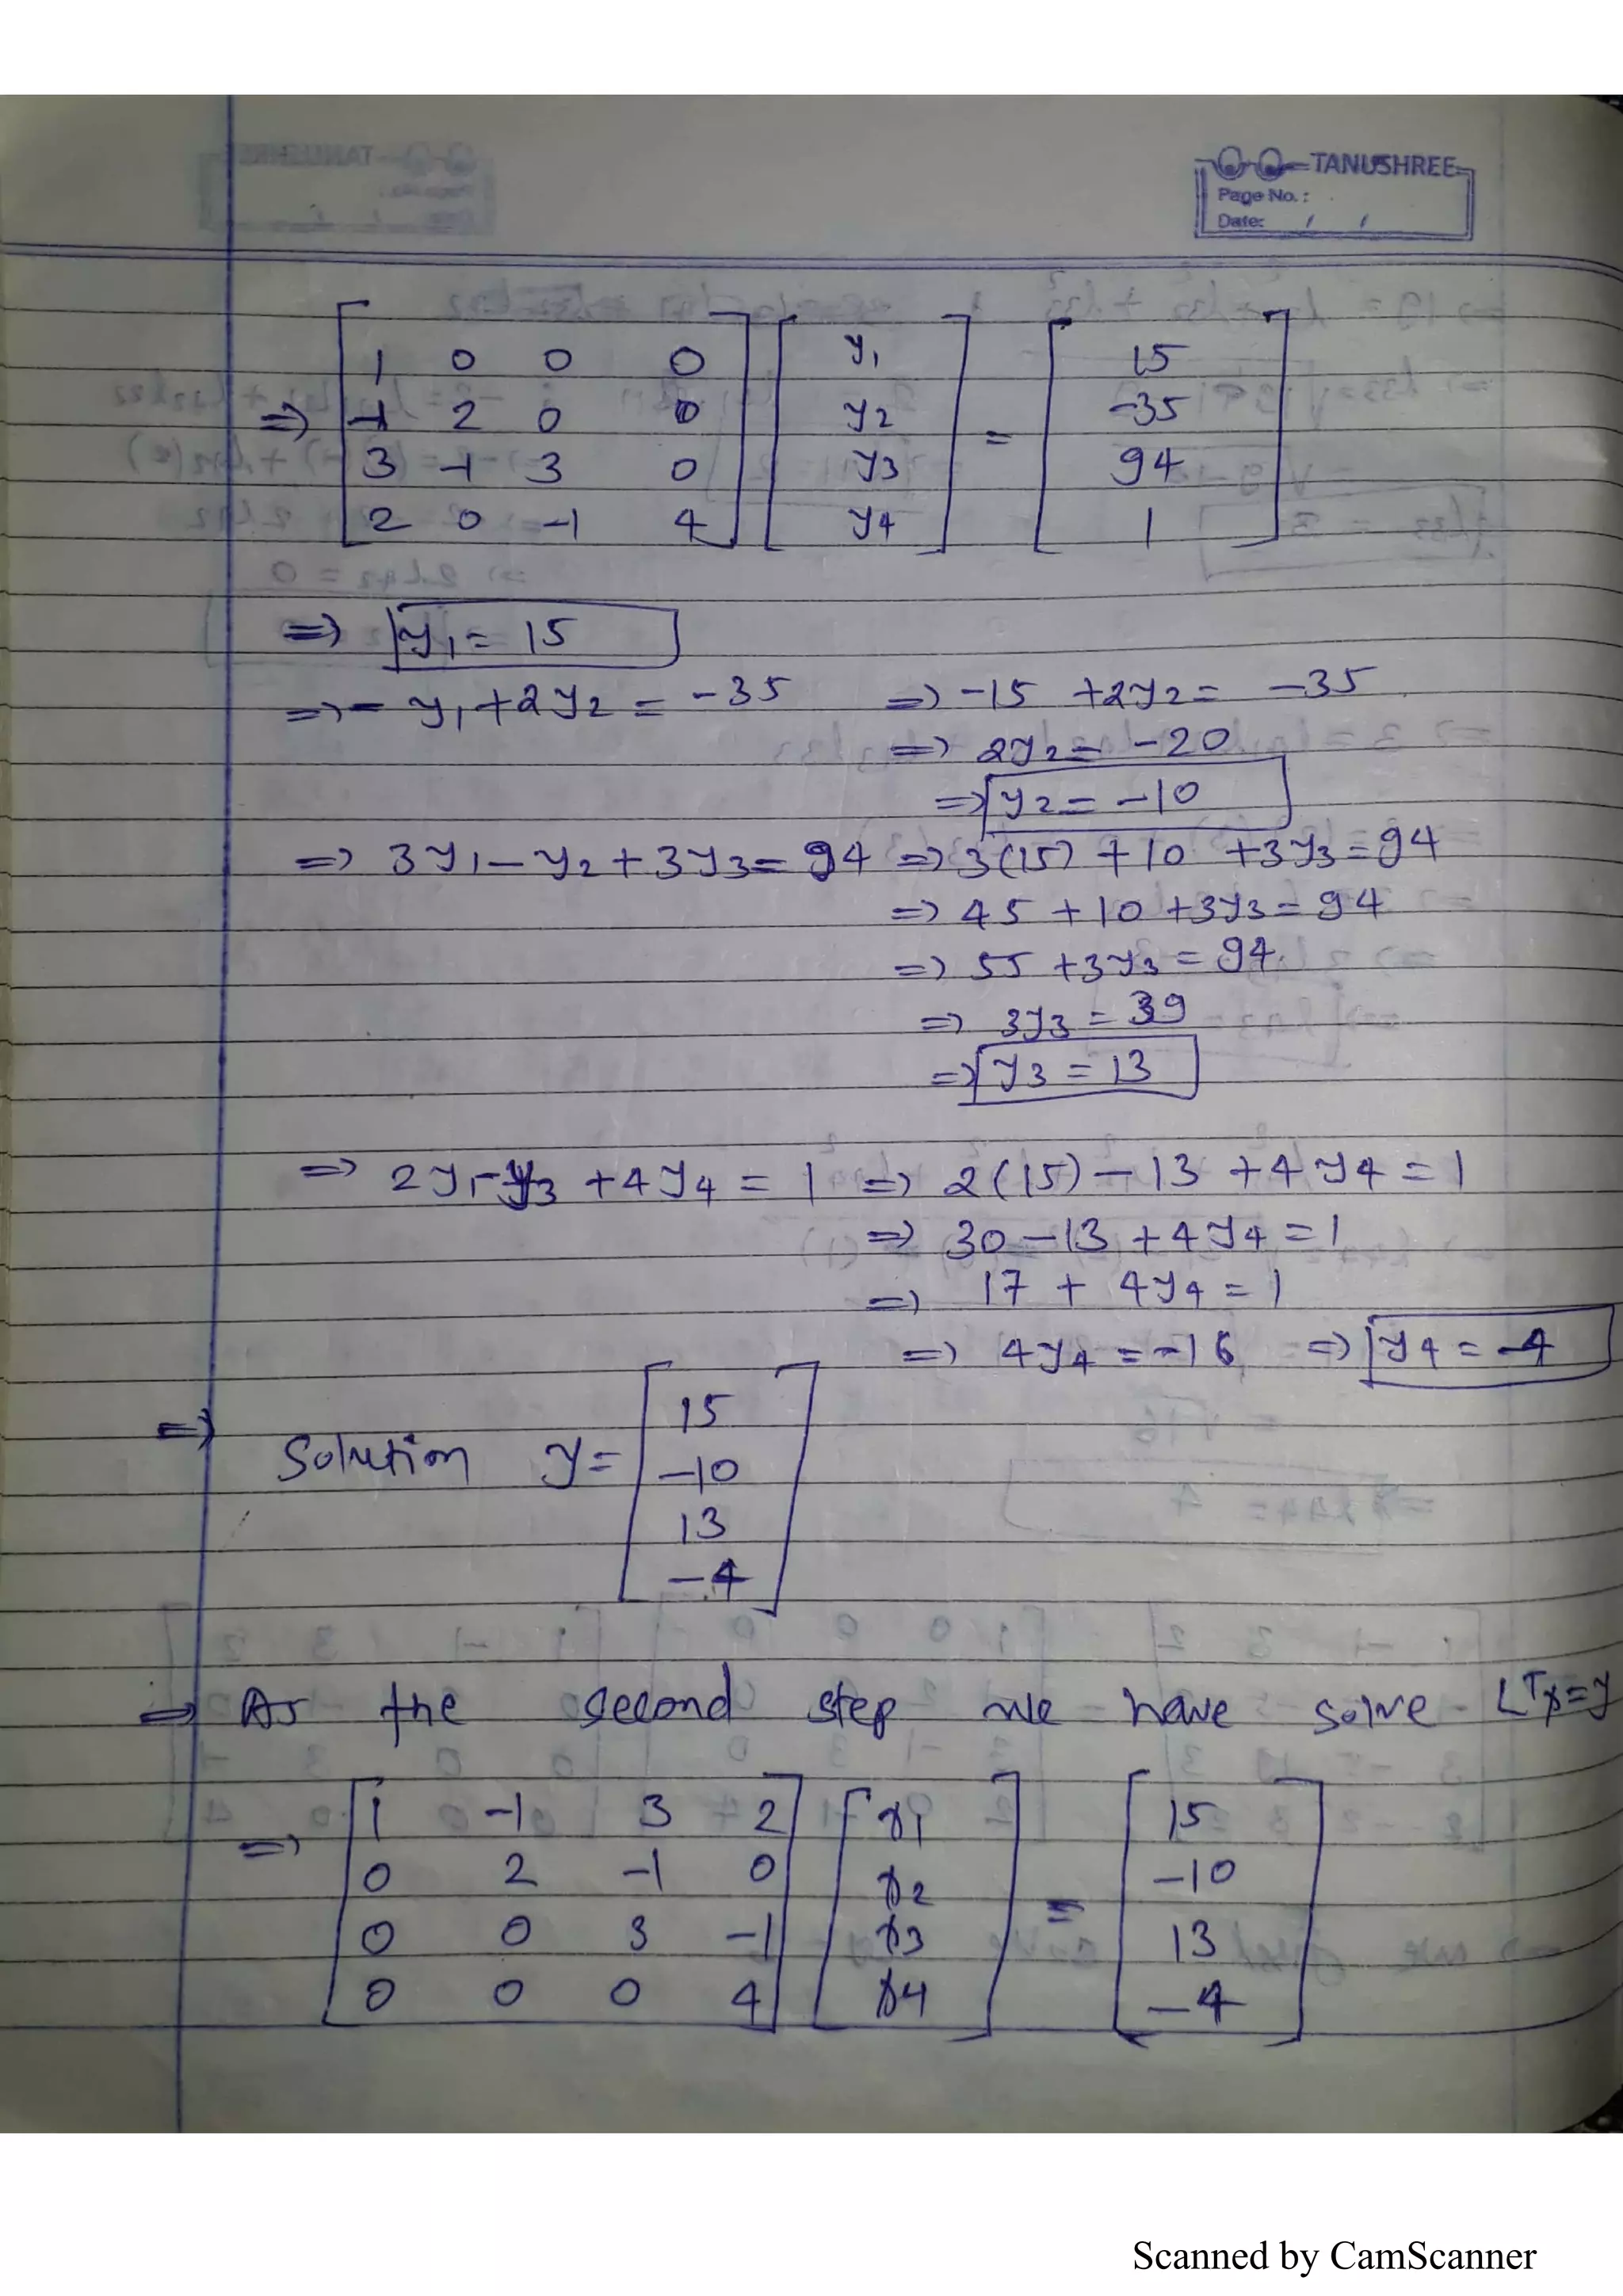 TANUSHREE
Page No.:
Date: / /
=> [1 0 0 0] [y1] = [15]
[-1 2 0 0] [y2] [-35]
[3 -1 3 0] [y3] [94]
[2 0 -1 4] [y4] [1]
=> y1 = 15
=> - y1 + 2y2 = -35 => -15 + 2y2 = -35
=> 2y2 = -20
=> y2 = -10
=> 3y1 - y2 + 3y3 = 94 => 3(15) + 10 + 3y3 = 94
=> 45 + 10 + 3y3 = 94
=> 55 + 3y3 = 94
=> 3y3 = 39
=> y3 = 13
=> 2y1 - y3 + 4y4 = 1 => 2(15) - 13 + 4y4 = 1
=> 30 - 13 + 4y4 = 1
=> 17 + 4y4 = 1
=> 4y4 = -16 => y4 = -4
=> Solution y = [15
-10
13
-4]
=> As the second step we have solve L^T x = y
=> [1 -1 3 2] [x1] = [15]
[0 2 -1 0] [x2] [-10]
[0 0 3 -1] [x3] [13]
[0 0 0 4] [x4] [-4]
Scanned by CamScanner